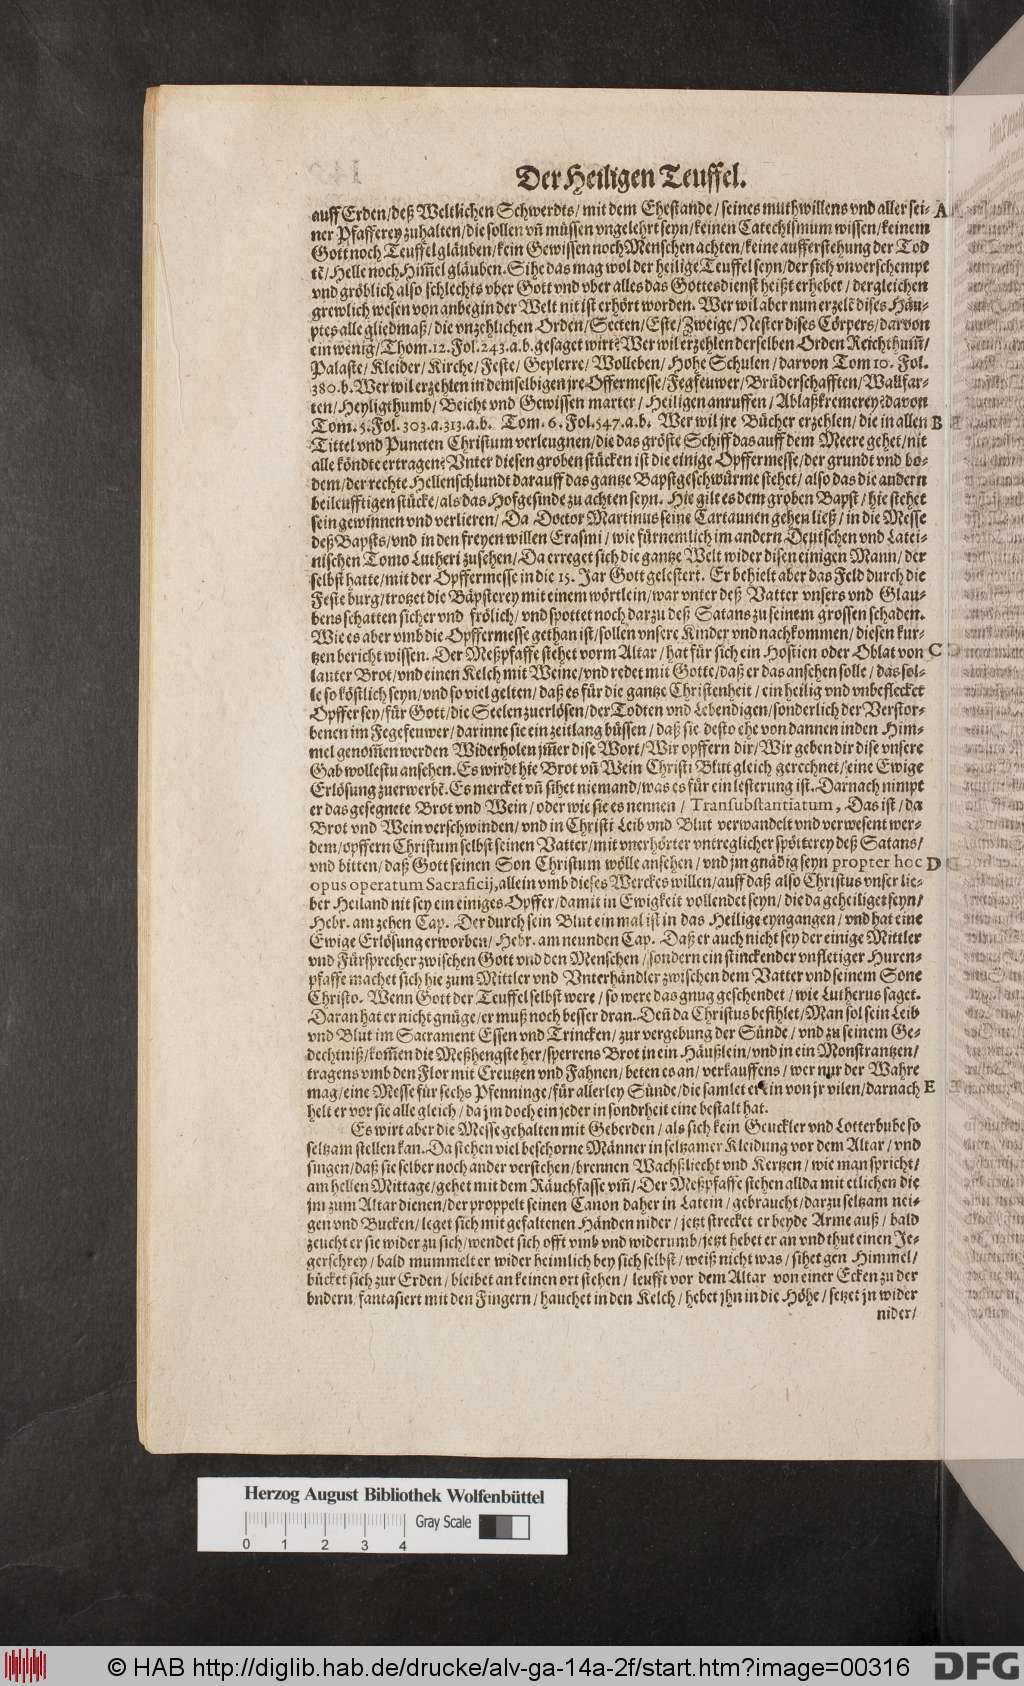 Der Heiligen Teuffel.
auff Erden/deß Weltlichen Schwerdts/mit dem Ehestande/seines muthwillens vnd aller sei- A
ner Pfafferey zuhalten/die sollen vñ müssen vngelehrt seyn/keinen Catechismum wissen/keinem
Gott noch Teuffel gläuben/kein Gewissen noch Menschen achten/keine aufferstehung der Tod
tẽ/Helle noch Him̃el gläuben. Sihe das mag wol der heilige Teuffel seyn/der sich vnverschempt
vnd gröblich also schlechts vber Gott vnd vber alles das Gottesdienst heißt erhebet/dergleichen
grewlich wesen von anbegin der Welt nit ist erhört worden. Wer wil aber nun erzelẽ dises Häu-
ptes alle gliedmaß/die vnzehlichen Orden/Secten/Este/Zweige/Nester dises Cörpers/darvon
ein wenig/Thom.12.Fol.243.a.b.gesaget wirt? Wer wil erzehlen derselben Orden Reichthum̃/
Palaste/Kleider/Kirche/Feste/Geplerre/Wolleben/Hohe Schulen/darvon Tom 10. Fol.
380.b.Wer wil erzehlen in demselbigen jre Offermesse/Fegfeuwer/Brüderschafften/Wallfar-
ten/Heyligthumb/Beicht vnd Gewissen marter/Heiligen anruffen/Ablaßkremerey?davon
Tom.5.Fol.303.a.313.a.b. Tom.6.Fol.547.a.b. Wer wil jre Bücher erzehlen/die in allen B
Tittel vnd Puncten Christum verleugnen/die das gröste Schiff das auff dem Meere gehet/nit
alle köndte ertragen? Vnter diesen groben stücken ist die einige Opffermesse/der grundt vnd bo-
dem/der rechte Hellenschlundt darauff das gantze Bapstgeschwürme stehet/also das die andern
beileufftigen stücke/als das Hofgesinde zu achten seyn. Hie gilt es dem groben Bapst/hie stehet
sein gewinnen vnd verlieren/Da Doctor Martinus seine Cartaunen gehen ließ/in die Messe
deß Bapsts/vnd in den freyen willen Erasmi/wie fürnemlich im andern Deutschen vnd Latei-
nischen Tomo Lutheri zusehen/Da erreget sich die gantze Welt wider disen einigen Mann/der
selbst hatte/mit der Opffermesse in die 15. Jar Gott gelestert. Er behielt aber das Feld durch die
Feste burg/trotzet die Bäpsterey mit einem wörtlein/war vnter deß Vatter vnsers vnd Glau-
bens schatten sicher vnd frölich/vnd spottet noch darzu deß Satans zu seinem grossen schaden.
Wie es aber vmb die Opffermesse gethan ist/sollen vnsere Kinder vnd nachkommen/diesen kur-
tzen bericht wissen. Der Meßpfaffe stehet vorm Altar/hat für sich ein Hostien oder Oblat von C
lauter Brot/vnd einen Kelch mit Weine/vnd redet mit Gotte/daß er das anschen solle/das sol-
le so köstlich seyn/vnd so viel gelten/daß es für die gantze Christenheit/ein heilig vnd vnbeflecket
Opffer sey/für Gott/die Seelen zu erlösen/der Todten vnd Lebendigen/sonderlich der Verstor-
benen im Fegefeuwer/darinne sie ein zeitlang büssen/daß sie desto ehe von dannen in den Him-
mel genom̃en werden Widerholen jm̃er dise Wort/Wir opffern dir/Wir geben dir dise vnsere
Gab wollestu ansehen. Es wirdt hie Brot vñ Wein Christi Blut gleich gerechnet/eine Ewige
Erlösung zu erwerbẽ. Es mercket vñ sihet niemand/was es für ein lesterung ist. Darnach nimpt
er das gesegnete Brot vnd Wein/oder wie sie es nennen/Transubstantiatum, Das ist/da
Brot vnd Wein verschwinden/vnd in Christi Leib vnd Blut verwandelt vnd verwesent wer-
dem/opffern Christum selbst seinen Vatter/mit vnerhörter vntreglicher spötterey deß Satans/
vnd bitten/daß Gott seinen Son Christum wölle ansehen/vnd jm gnädig seyn propter hoc D
opus operatum Sacraficij,allein vmb dieses Werckes willen/auff daß also Christus vnser lie-
ber Heiland nit sey ein einiges Opffer/damit in Ewigkeit vollendet seyn/die da geheiliget seyn/
Hebr. am zehen Cap. Der durch sein Blut ein mal ist in das Heilige eyngangen/vnd hat eine
Ewige Erlösung erworben/Hebr. am neunden Cap. Daß er auch nicht sey der einige Mittler
vnd Fürsprecher zwischen Gott vnd den Menschen/sondern ein stinckender vnfletiger Huren-
pfaffe machet sich hie zum Mittler vnd Vnterhändler zwischen dem Vatter vnd seinem Sone
Christo. Wenn Gott der Teuffel selbst were/so were das gnug geschendet/wie Lutherus saget.
Daran hat er nicht gnüge/er muß noch besser dran. Deñ da Christus befihlet/Man sol sein Leib
vnd Blut im Sacrament Essen vnd Trincken/zur vergebung der Sünde/vnd zu seinem Ge-
dechtniß/kom̃en die Meßhengste her/sperrens Brot in ein Häußlein/vnd in ein Monstrantzen/
tragens vmb den Flor mit Creutzen vnd Fahnen/beten es an/verkauffens/wer nur der Wahre
mag/eine Messe für sechs Pfenninge/für allerley Sünde/die samlet er ein von jr vilen/darnach E
helt er vor sie alle gleich/da jm doch ein jeder in sondrheit eine bestalt hat.
Es wirt aber die Messe gehalten mit Geberden/als sich kein Geuckler vnd Lotterbube so
seltzam stellen kan. Da stehen viel beschorne Männer in seltzamer Kleidung vor dem Altar/vnd
singen/daß sie selber noch ander verstehen/brennen Wachßliecht vnd Kertzen/wie man spricht/
am hellen Mittage/gehet mit dem Räuchfasse vm̃/Der Meßpfaffe stehen allda mit etlichen die
jm zum Altar dienen/der proppelt seinen Canon daher in Latein/gebraucht/darzu seltzam nei-
gen vnd Bucken/leget sich mit gefaltenen Händen nider/jetzt strecket er beyde Arme auß/bald
zeucht er sie wider zu sich/wendet sich offt vmb vnd widerumb/jetzt hebet er an vnd thut einen Je-
gerschrey/bald mummelt er wider heimlich bey sich selbst/weiß nicht was/sihet gen Himmel/
bücket sich zur Erden/bleibet an keinen ort stehen/leufft vor dem Altar von einer Ecken zu der
bndern/fantasiert mit den Fingern/hauchet in den Kelch/hebet jhn in die Höhe/setzet jn wider
nider/
Herzog August Bibliothek Wolfenbüttel
Gray Scale
0 1 2 3 4
© HAB http://diglib.hab.de/drucke/alv-ga-14a-2f/start.htm?image=00316
DFG